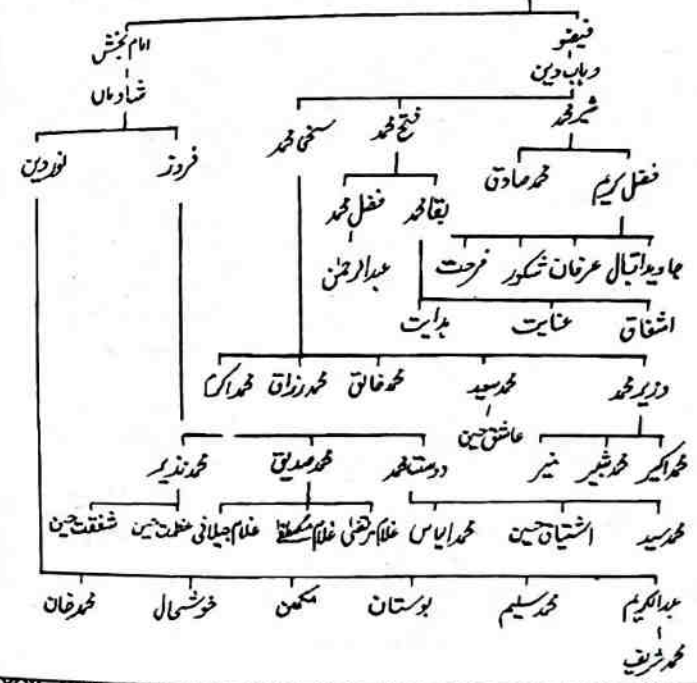 فیضو امام بخش
وہاب دین
شادماں
شیر محمد فتح محمد سخی محمد
فروز نور دین
فضل کریم محمد صادق بقا محمد فضل محمد
جاوید اقبال عرفان شکور فرحت عبدالرحمٰن
اشفاق عنایت ہدایت
وزیر محمد محمد سعید محمد خالق محمد رزاق محمد اکرم
عاشق حسین
محمد اکبر محمد شبیر منیر دوست محمد محمد صدیق محمد نذیر
محمد سید اشتیاق حسین محمد الیاس غلام مرتضیٰ غلام مصطفےٰ غلام جیلانی عظمت حسین شفقت حسین
عبدالکریم محمد سلیم بوستان مکھن خوشحال محمد خان
محمد شریف